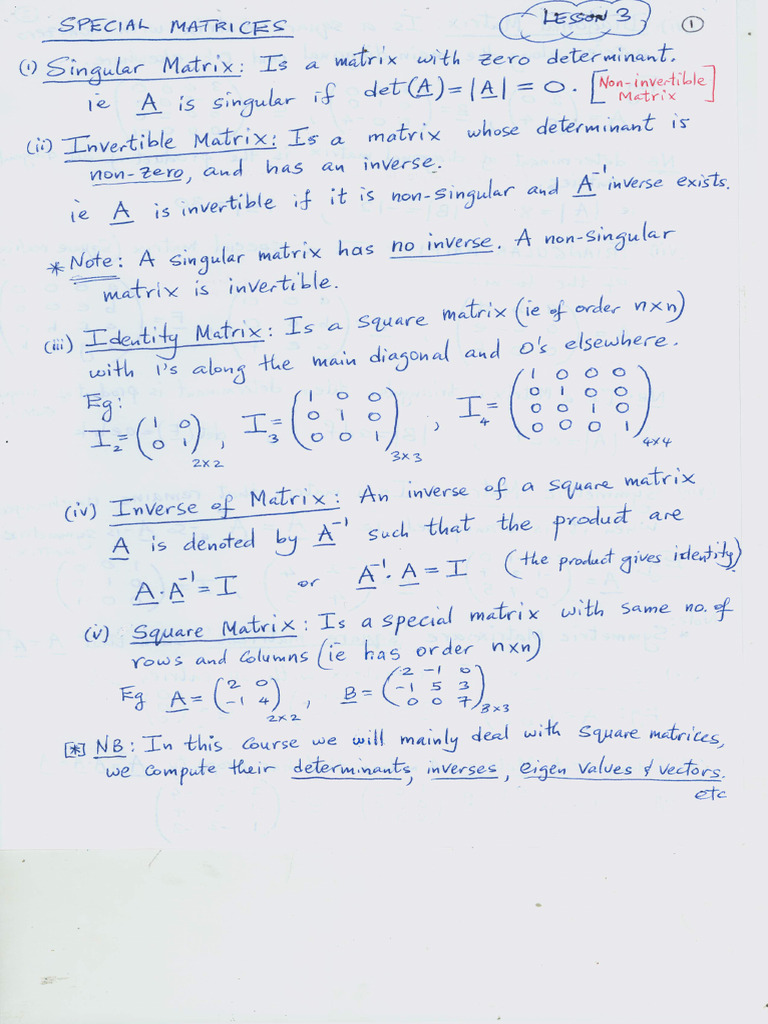 SPECIAL MATRICES
LESSON 3
1
(i) Singular Matrix: Is a matrix with zero determinant.
ie A is singular if det(A) = |A| = 0. [Non-invertible Matrix]
(ii) Invertible Matrix: Is a matrix whose determinant is
non-zero, and has an inverse.
ie A is invertible if it is non-singular and A⁻¹ inverse exists.
* Note: A singular matrix has no inverse. A non-singular
matrix is invertible.
(iii) Identity Matrix: Is a square matrix (ie of order n×n)
with 1's along the main diagonal and 0's elsewhere.
Eg:
I₂ = (1 0
0 1) 2×2 , I₃ = (1 0 0
0 1 0
0 0 1) 3×3 , I₄ = (1 0 0 0
0 1 0 0
0 0 1 0
0 0 0 1) 4×4
(iv) Inverse of Matrix: An inverse of a square matrix
A is denoted by A⁻¹ such that the product are
A.A⁻¹ = I or A⁻¹.A = I (the product gives identity)
(v) Square Matrix: Is a special matrix with same no. of
rows and columns (ie has order n×n)
Eg A = (2 0
-1 4) 2×2 , B = (2 -1 0
-1 5 3
0 0 7) 3×3
[*] NB: In this course we will mainly deal with square matrices,
we compute their determinants, inverses, eigen values & vectors.
etc